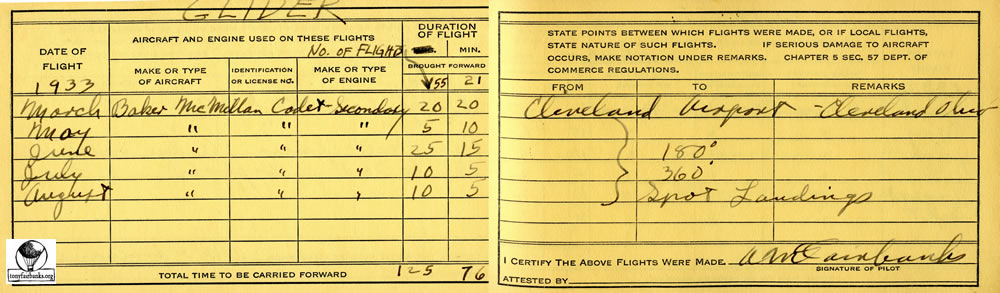 GLIDER
DATE OF FLIGHT
1933
AIRCRAFT AND ENGINE USED ON THESE FLIGHTS
No. OF FLIGHTS
DURATION OF FLIGHT
HRS. MIN.
MAKE OR TYPE OF AIRCRAFT
IDENTIFICATION OR LICENSE NO.
MAKE OR TYPE OF ENGINE
BROUGHT FORWARD
55 21
March Baker McMillan Cadet Secondary 20 20
May " " " 5 10
June " " " 25 15
July " " " 10 5
August " " " 10 5
TOTAL TIME TO BE CARRIED FORWARD 125 76
tonyfairbanks.org
STATE POINTS BETWEEN WHICH FLIGHTS WERE MADE, OR IF LOCAL FLIGHTS,
STATE NATURE OF SUCH FLIGHTS. IF SERIOUS DAMAGE TO AIRCRAFT
OCCURS, MAKE NOTATION UNDER REMARKS. CHAPTER 5 SEC. 57 DEPT. OF
COMMERCE REGULATIONS.
FROM TO REMARKS
Cleveland Airport - Cleveland Ohio
180°
360°
Spot Landings
I CERTIFY THE ABOVE FLIGHTS WERE MADE. A M Fairbanks
SIGNATURE OF PILOT
ATTESTED BY